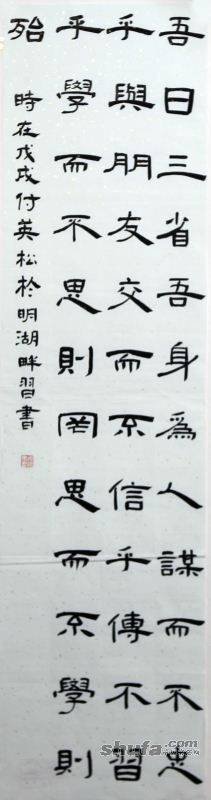 吾日三省吾身為人謀而不忠
乎與朋友交而不信乎傳不習
乎學而不思則罔思而不學則
殆
時在戊戌付英松於明湖畔習書
shufa.com